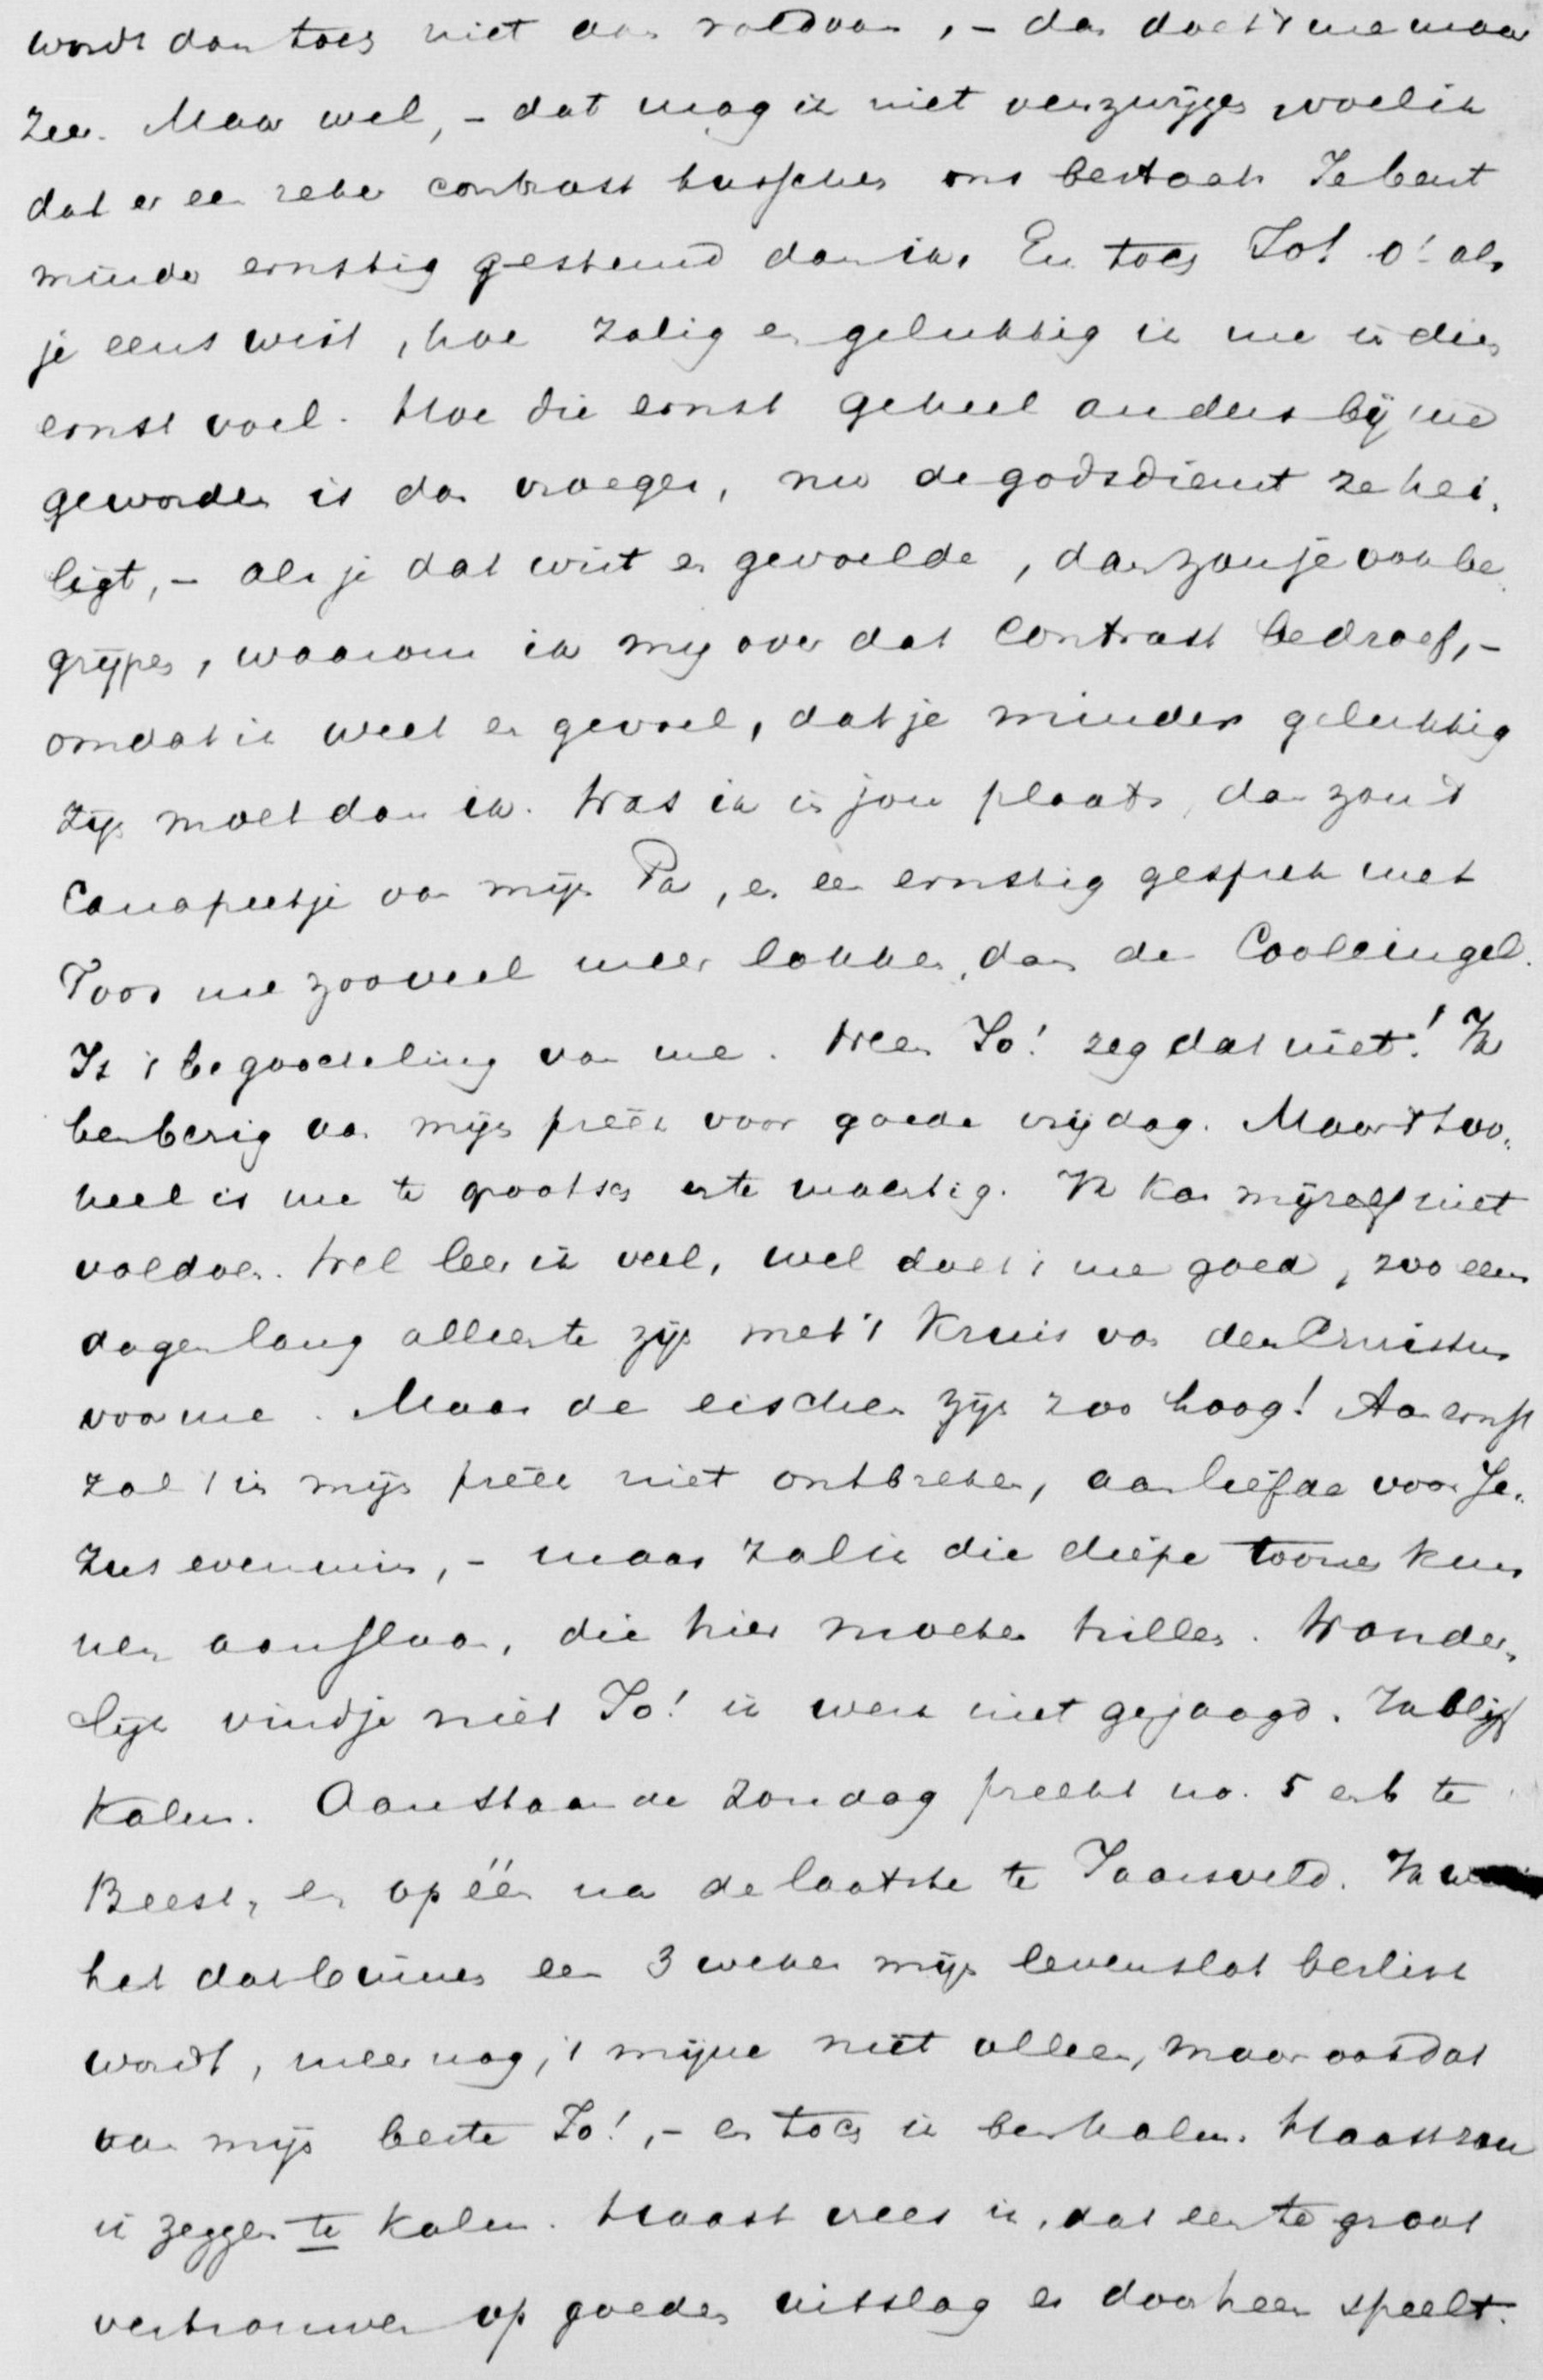 wordt dan toch niet aan voldaan, – dan doet 't me maar
zeer. Maar wel, – dat mag ik niet verzwijgen voel ik
dat er een zeker contrast tusschen ons bestaat. Je bent
minder ernstig gestemd dan ik. En toch Jo! o! als
je eens wist, hoe zalig en gelukkig ik me in dien
ernst voel. Hoe die ernst geheel anders bij me
geworden is dan vroeger, nu de godsdienst ze hei„
ligt, – als je dat wist en gevoelde, dan zou je ook be„
grijpen, waarom ik mij over dat contrast bedroef, –
omdat ik weet en gevoel, dat je minder gelukkig
zijn moet dan ik. Was ik in jou plaats, dan zou 't
canapeetje van mijn Pa, en een ernstig gesprek met
Toos me zooveel meer lokken, dan de Coolsingel.
Is 't begoocheling van me. Neen Jo! zeg dat niet! Ik
ben bezig aan mijn preek voor goede vrijdag. Maar 't too„
neel is me te grootsch en te machtig. Ik kan mijzelf niet
voldoen. Wel leer ik veel, wel doet 't me goed, zoo een
dagenlang alleen te zijn met 't Kruis van den Christus
voor me. Maar de eischen zijn zoo hoog! Aan ernst
zal 't in mijn preek niet ontbreken, aan liefde voor Je„
zus evenmin, – maar zal ik die diepe toonen kun
nen aanslaan, die hier moeten trillen. Wonder„
lijk vindje niet Jo! ik werk niet gejaagd. Ik blijf
kalm. Aanstaande Zondag preekt no. 5 en 6 te
Beest, en op één na de laatste te Jaarsveld. Ik
het dat binnen een 3 weken mijn levenslot beslist
wordt, meer nog, 't mijne niet alleen, maar ook dat
van mijn beste Jo!, – en toch ik ben kalm. Haast zou
ik zeggen te kalm. Haast vrees ik, dat een te groot
vertrouwen op goeden uitslag er doorheen speelt.